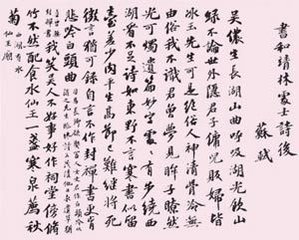 書和靖林處士詩後
蘇軾
吳儂生長湖山曲呼吸湖光飲山
綠不論世外隱君子傭兒販婦皆
冰玉先生可是絕俗人神清骨冷無
由俗我不識君曾夢見眸子瞭然
光可燭遺篇妙字處〻有步繞西
湖看不足詩如東野不言寒書似留
臺差少肉平生高節已難繼將死
微言猶可錄自言不作封禪書更肯
悲吟白頭曲
我笑吳人不好事好作祠堂傍脩
竹不然配食水仙王一盞寒泉薦秋
菊
湖有水
仙王廟